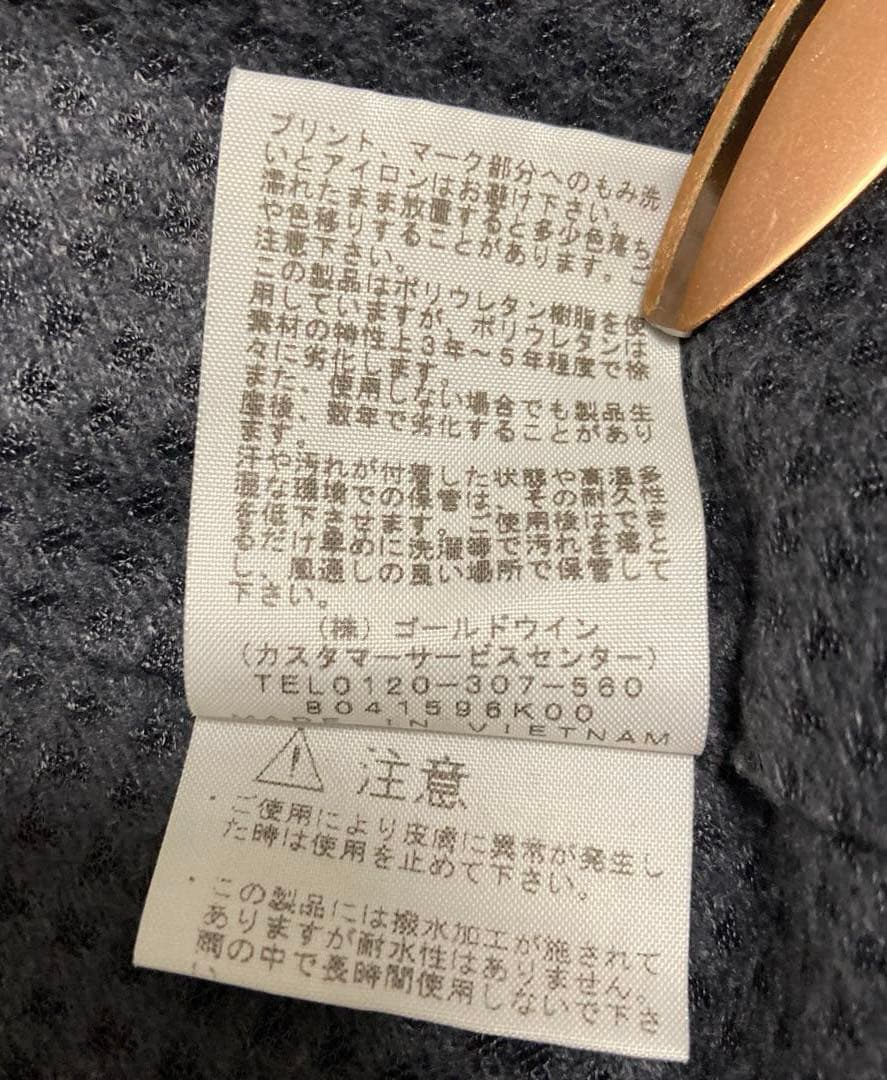 プリント、マーク部分へのもみ洗
いとアイロンはお避け下さい。
濡れたまま放置すると多少色落ち
や色移りすることがあります。ご
注意下さい。
この製品はポリウレタン樹脂を使
用していますが、ポリウレタンは
素材の特性上3年～5年程度で徐
々に劣化します。
また、使用しない場合でも製品生
産後、数年で劣化することがあり
ます。
汗や汚れが付着した状態や高温多
湿な環境での保管は、その耐久性
を低下させます。ご使用後はでき
るだけ早めに洗濯等で汚れを落とし
、風通しの良い場所で保管して
下さい。
(株) ゴールドウイン
(カスタマーサービスセンター)
TEL0120-307-560
B041596K00
MADE IN VIETNAM
注意
・ご使用により皮膚に異常が発生し
た時は使用を止めて下さい。
・この製品には撥水加工が施されて
ありますが耐水性はありません。
雨の中で長時間使用しないで下さ
い。